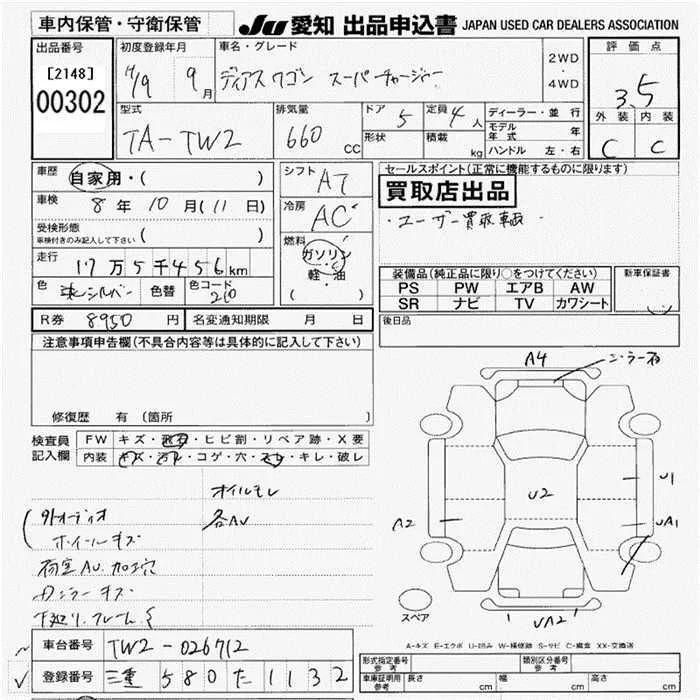 車内保管・守衛保管
JU 愛知 出品申込書 JAPAN USED CAR DEALERS ASSOCIATION
出品番号
[2148]
00302
初度登録年月
H/19 9月
車名・グレード
ディアスワゴン スーパーチャージャー
2WD
・
4WD
評価点
3.5
外装 内装
C C
型式
TA-TW2
排気量
660 cc
ドア 5
定員 4人
形状
積載 kg
ディーラー・並行
モデル年式 年
ハンドル 左・右
車歴
自家用・( )
車検
8年10月(11日)
受検形態
車検付きのみ記入して下さい ( )
走行
17万5千456km
色 シルバー
色替
色コード
シフト AT
冷房 AC
燃料
ガソリン
軽・油
( )
セールスポイント(正常に機能するものに限ります)
買取店出品
・ユーザー買取車輌
装備品(純正品に限り○をつけてください)
PS PW エアB AW
SR ナビ TV カワシート
新車保証書
後日品
R券 8950円
名変通知期限 月 日
注意事項申告欄(不具合内容等は具体的に記入して下さい)
修復歴 有 (箇所
検査員記入欄
FW キズ・飛石・ヒビ割・リペア跡・X要
内装 キズ・汚れ・コゲ・穴・スレ・キレ・破レ
オイルモレ
外オーディオ
各AU
ホイールキズ
荷室AU.加工穴
下廻り.フレームS
A4
U2
A2
U1
UA1
UA2
スペア
A-キズ E-エクボ U-凹み W-補修跡 S-サビ C-腐食 XX-交換済
車台番号 TW2-026712
登録番号 三重 580 た 1132
形式指定番号
参考
類別区分番号
参考
車庫証明
参考
長さ cm
幅 cm
高さ cm